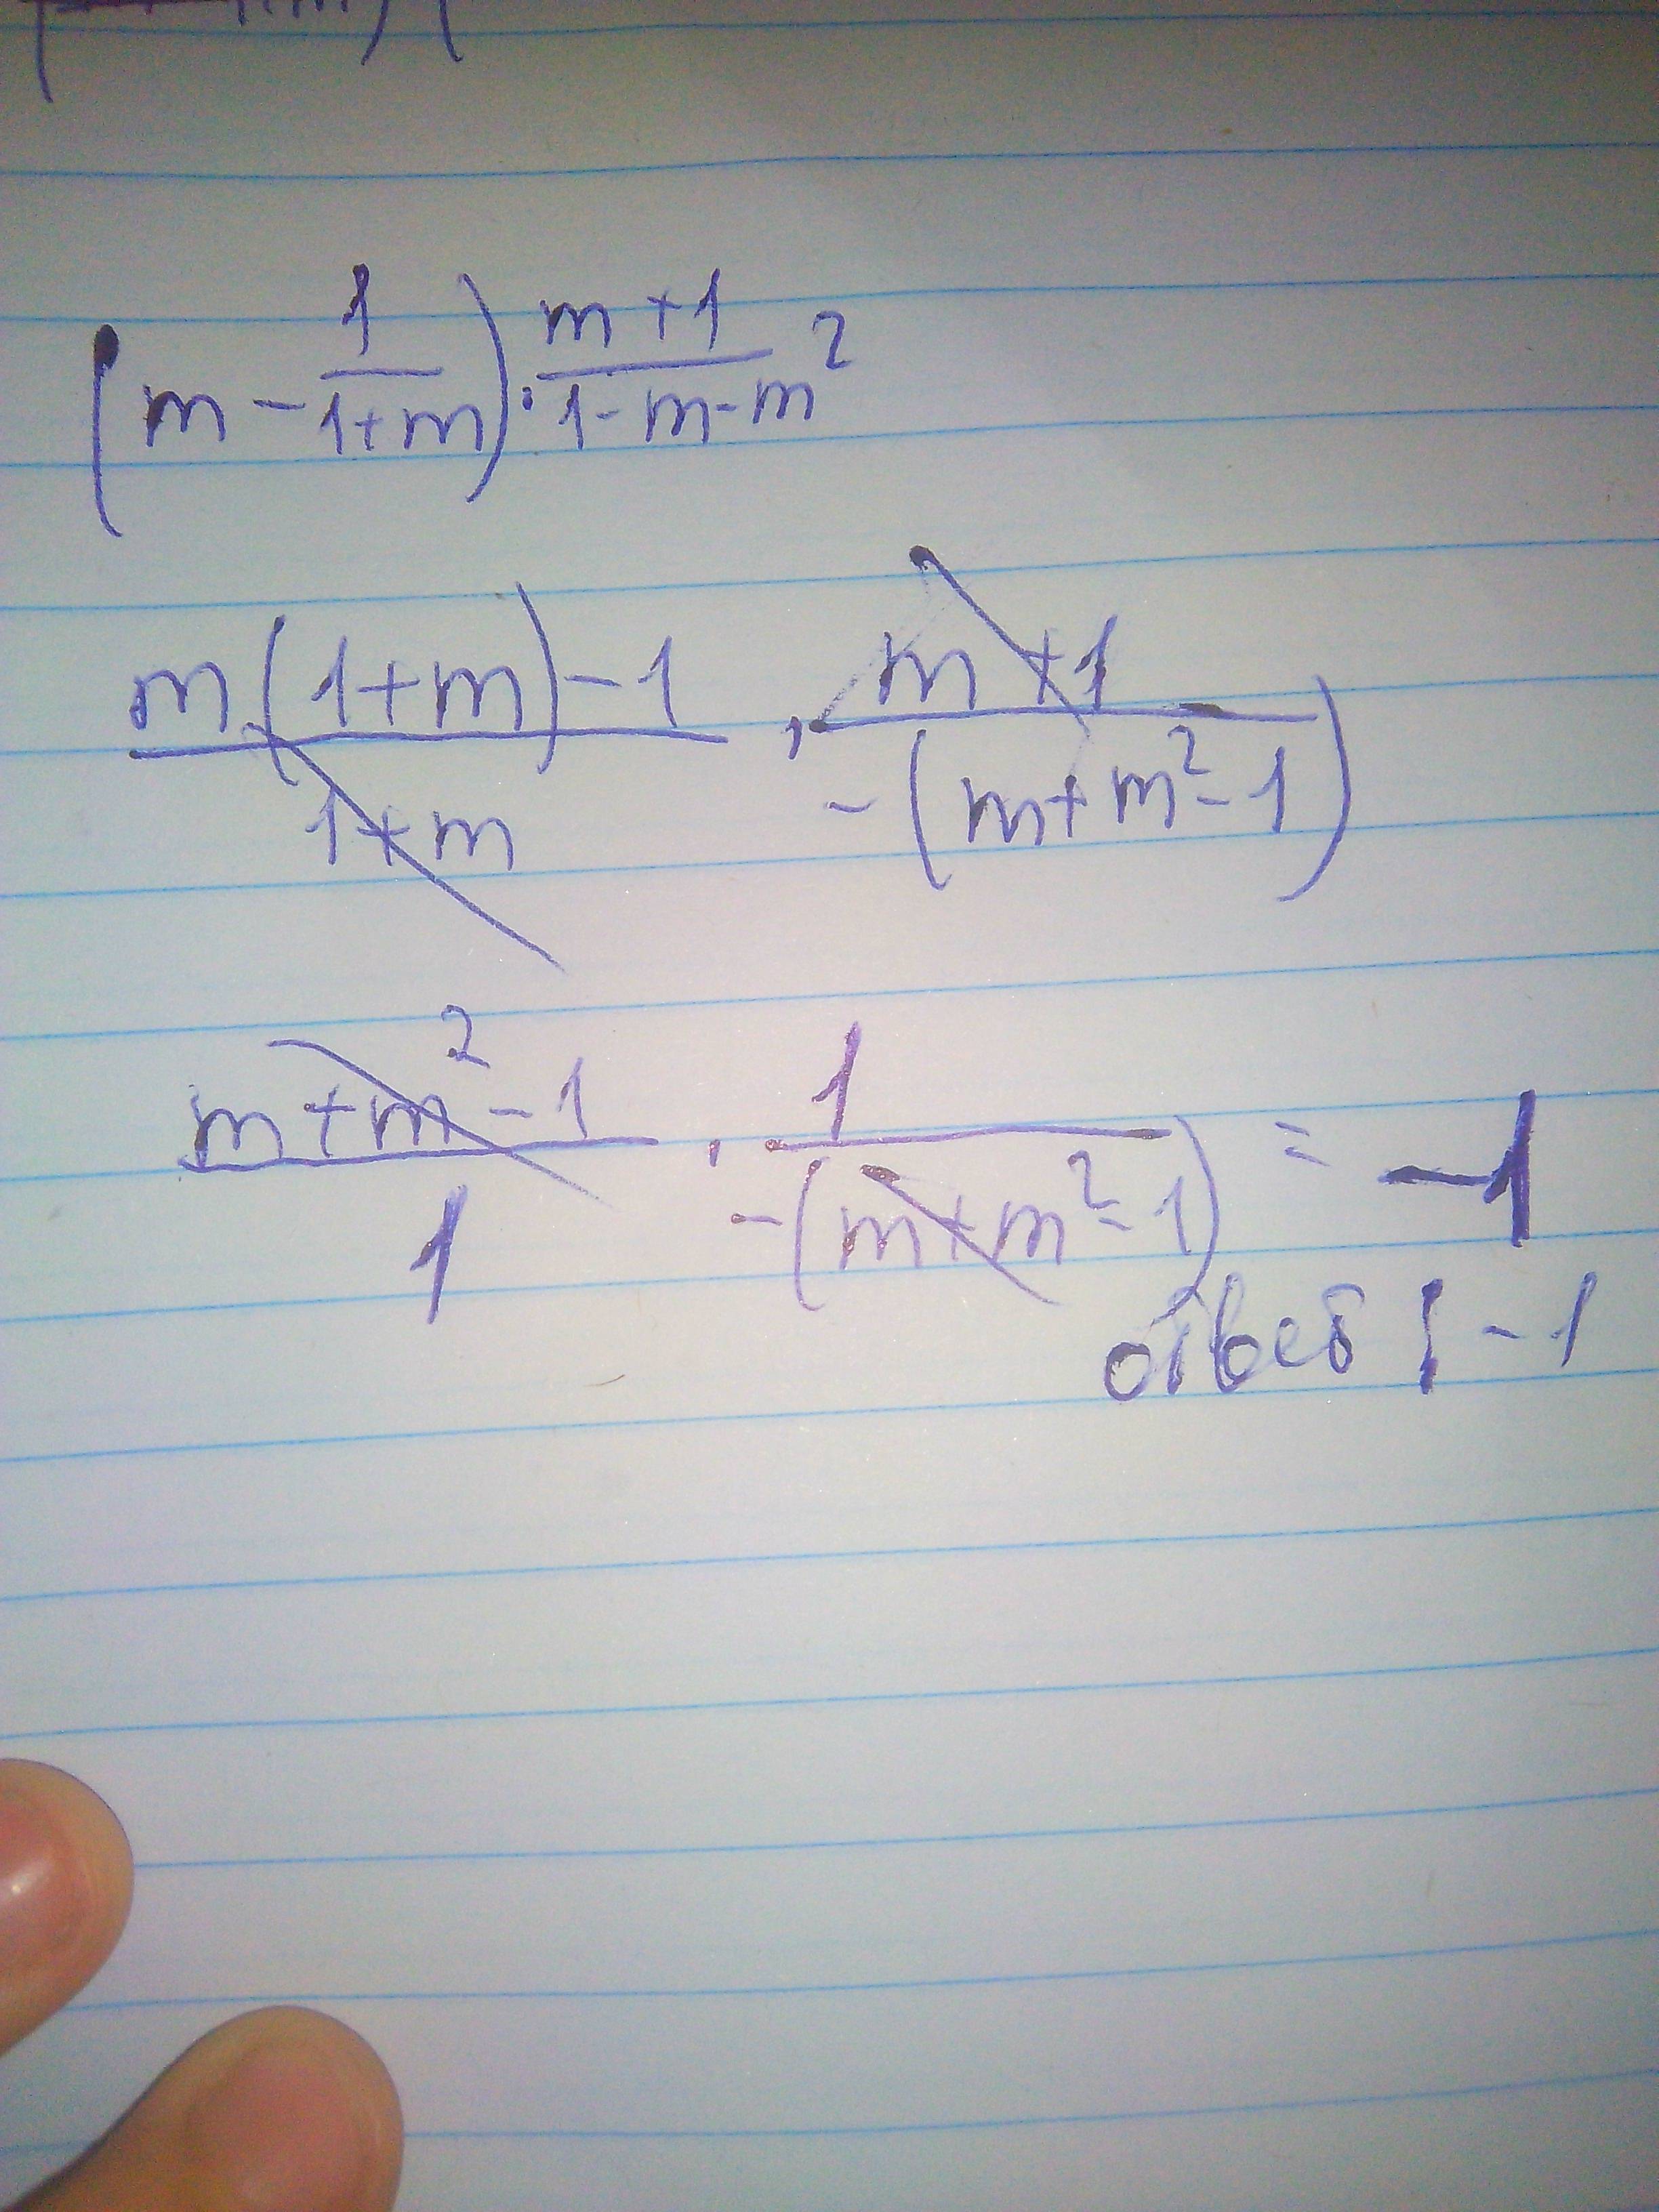 (m - 1/(1+m)) · (m+1)/(1-m-m²)
(m(1+m)-1)/(1+m) · (m+1)/(-(m+m²-1))
(m+m²-1)/1 · 1/(-(m+m²-1)) = -1
ответ: -1